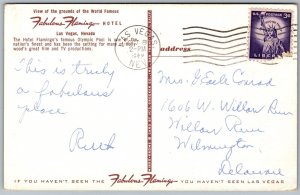 View of the grounds of the World Famous
Fabulous Flamingo HOTEL
Las Vegas, Nevada
The Hotel Flamingo's famous Olympic Pool is one of the
nation's finest and has been the setting for many of Holly-
wood's great film and TV productions.
LAS VEGAS
PM
NEV.
U.S. POSTAGE 3¢
LIBERTY
address
This is truly
a fabulous
place
Ruth
Mrs. Conrad
1606 W. Willow Run
Willow Run
Wilmington,
Delaware
IF YOU HAVEN'T SEEN THE Fabulous Flamingo YOU HAVEN'T SEEN LAS VEGAS